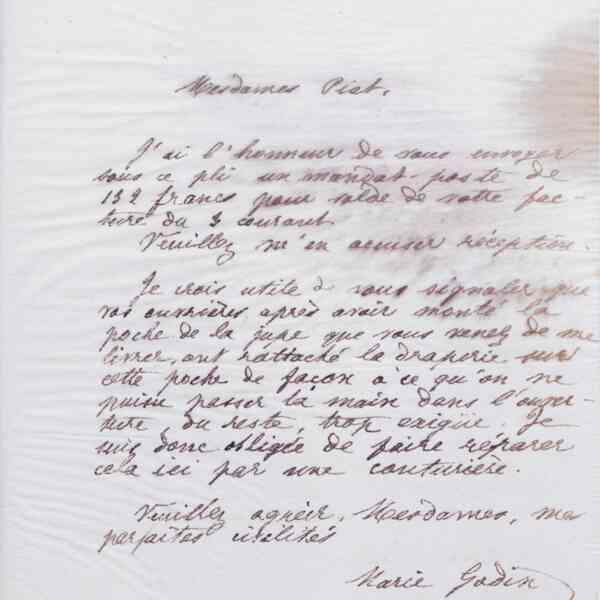 Mesdames Piat.
J'ai l'honneur de vous envoyer
sous ce pli un mandat-poste de
132 francs pour solde de votre fac-
ture du 3 courant
Veuillez m'en accuser réception.
Je crois utile de vous signaler que
vos ouvrières après avoir monté la
poche de la jupe que vous venez de me
livrer, ont rattaché la draperie sur
cette poche de façon à ce qu'on ne
puisse passer la main dans l'ouver-
ture, du reste, trop exigüe. Je
suis donc obligée de faire réparer
cela ici par une couturière.
Veuillez agréer, Mesdames, mes
parfaites civilités
Marie Godin